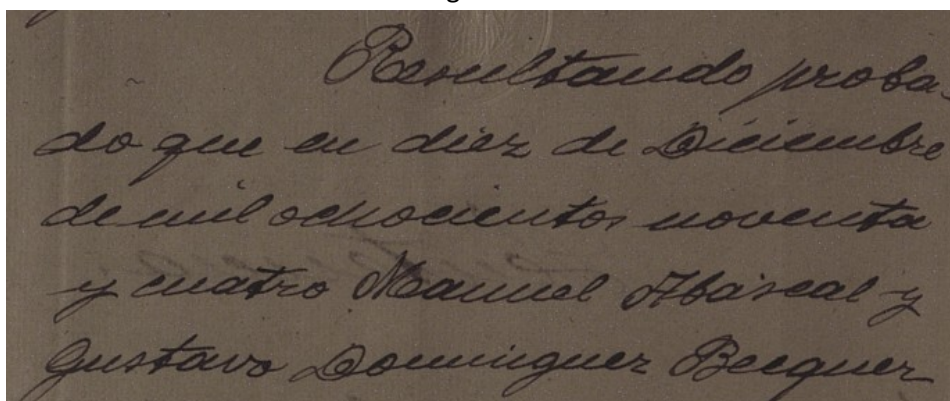 Resultando proba-
do que en diez de Diciembre
de mil ochocientos noventa
y cuatro Manuel Abascal y
Gustavo Dominguez Becquer